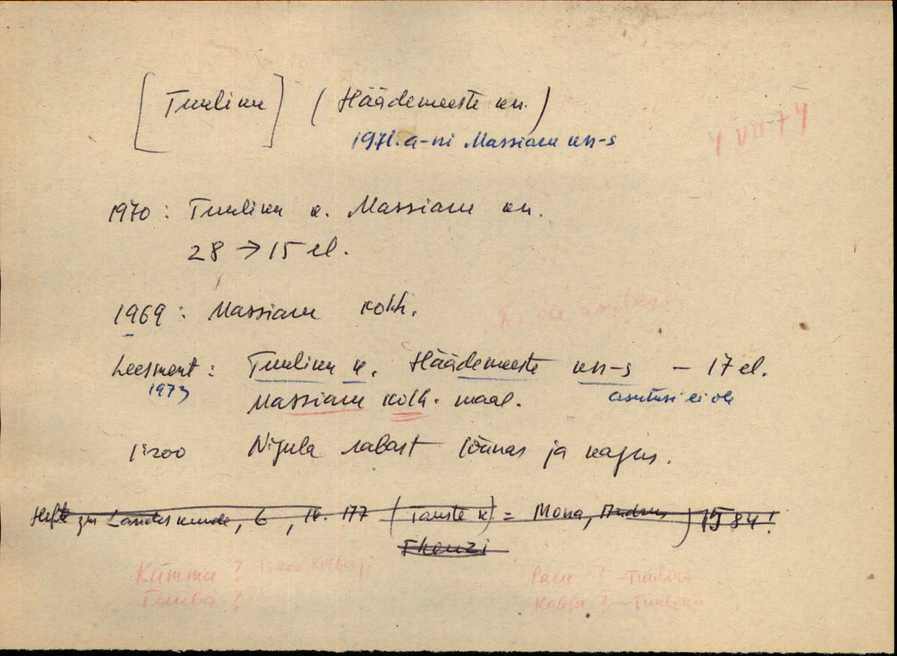 [Tuuliku] (Häädemeeste kn.)
1971. a-ni Massiaru kn-s
4 VII-74
1970: Tuuliku k. Massiaru kn.
28 → 15 el.
1969: Massiaru kolh.
Leesment: Tuuliku k. Häädemeeste kn-s – 17 el.
1973 asutusi ei ole
Massiaru kolh. maal.
1:200 Nigula rabast lõunas ja kagus.
Hefte zur Landeskunde, 6, 177 (Tauste k) = Mona, 1584!
Kümma? 1:200
Tomba?
? – Tuuliku
? – Tuuliku